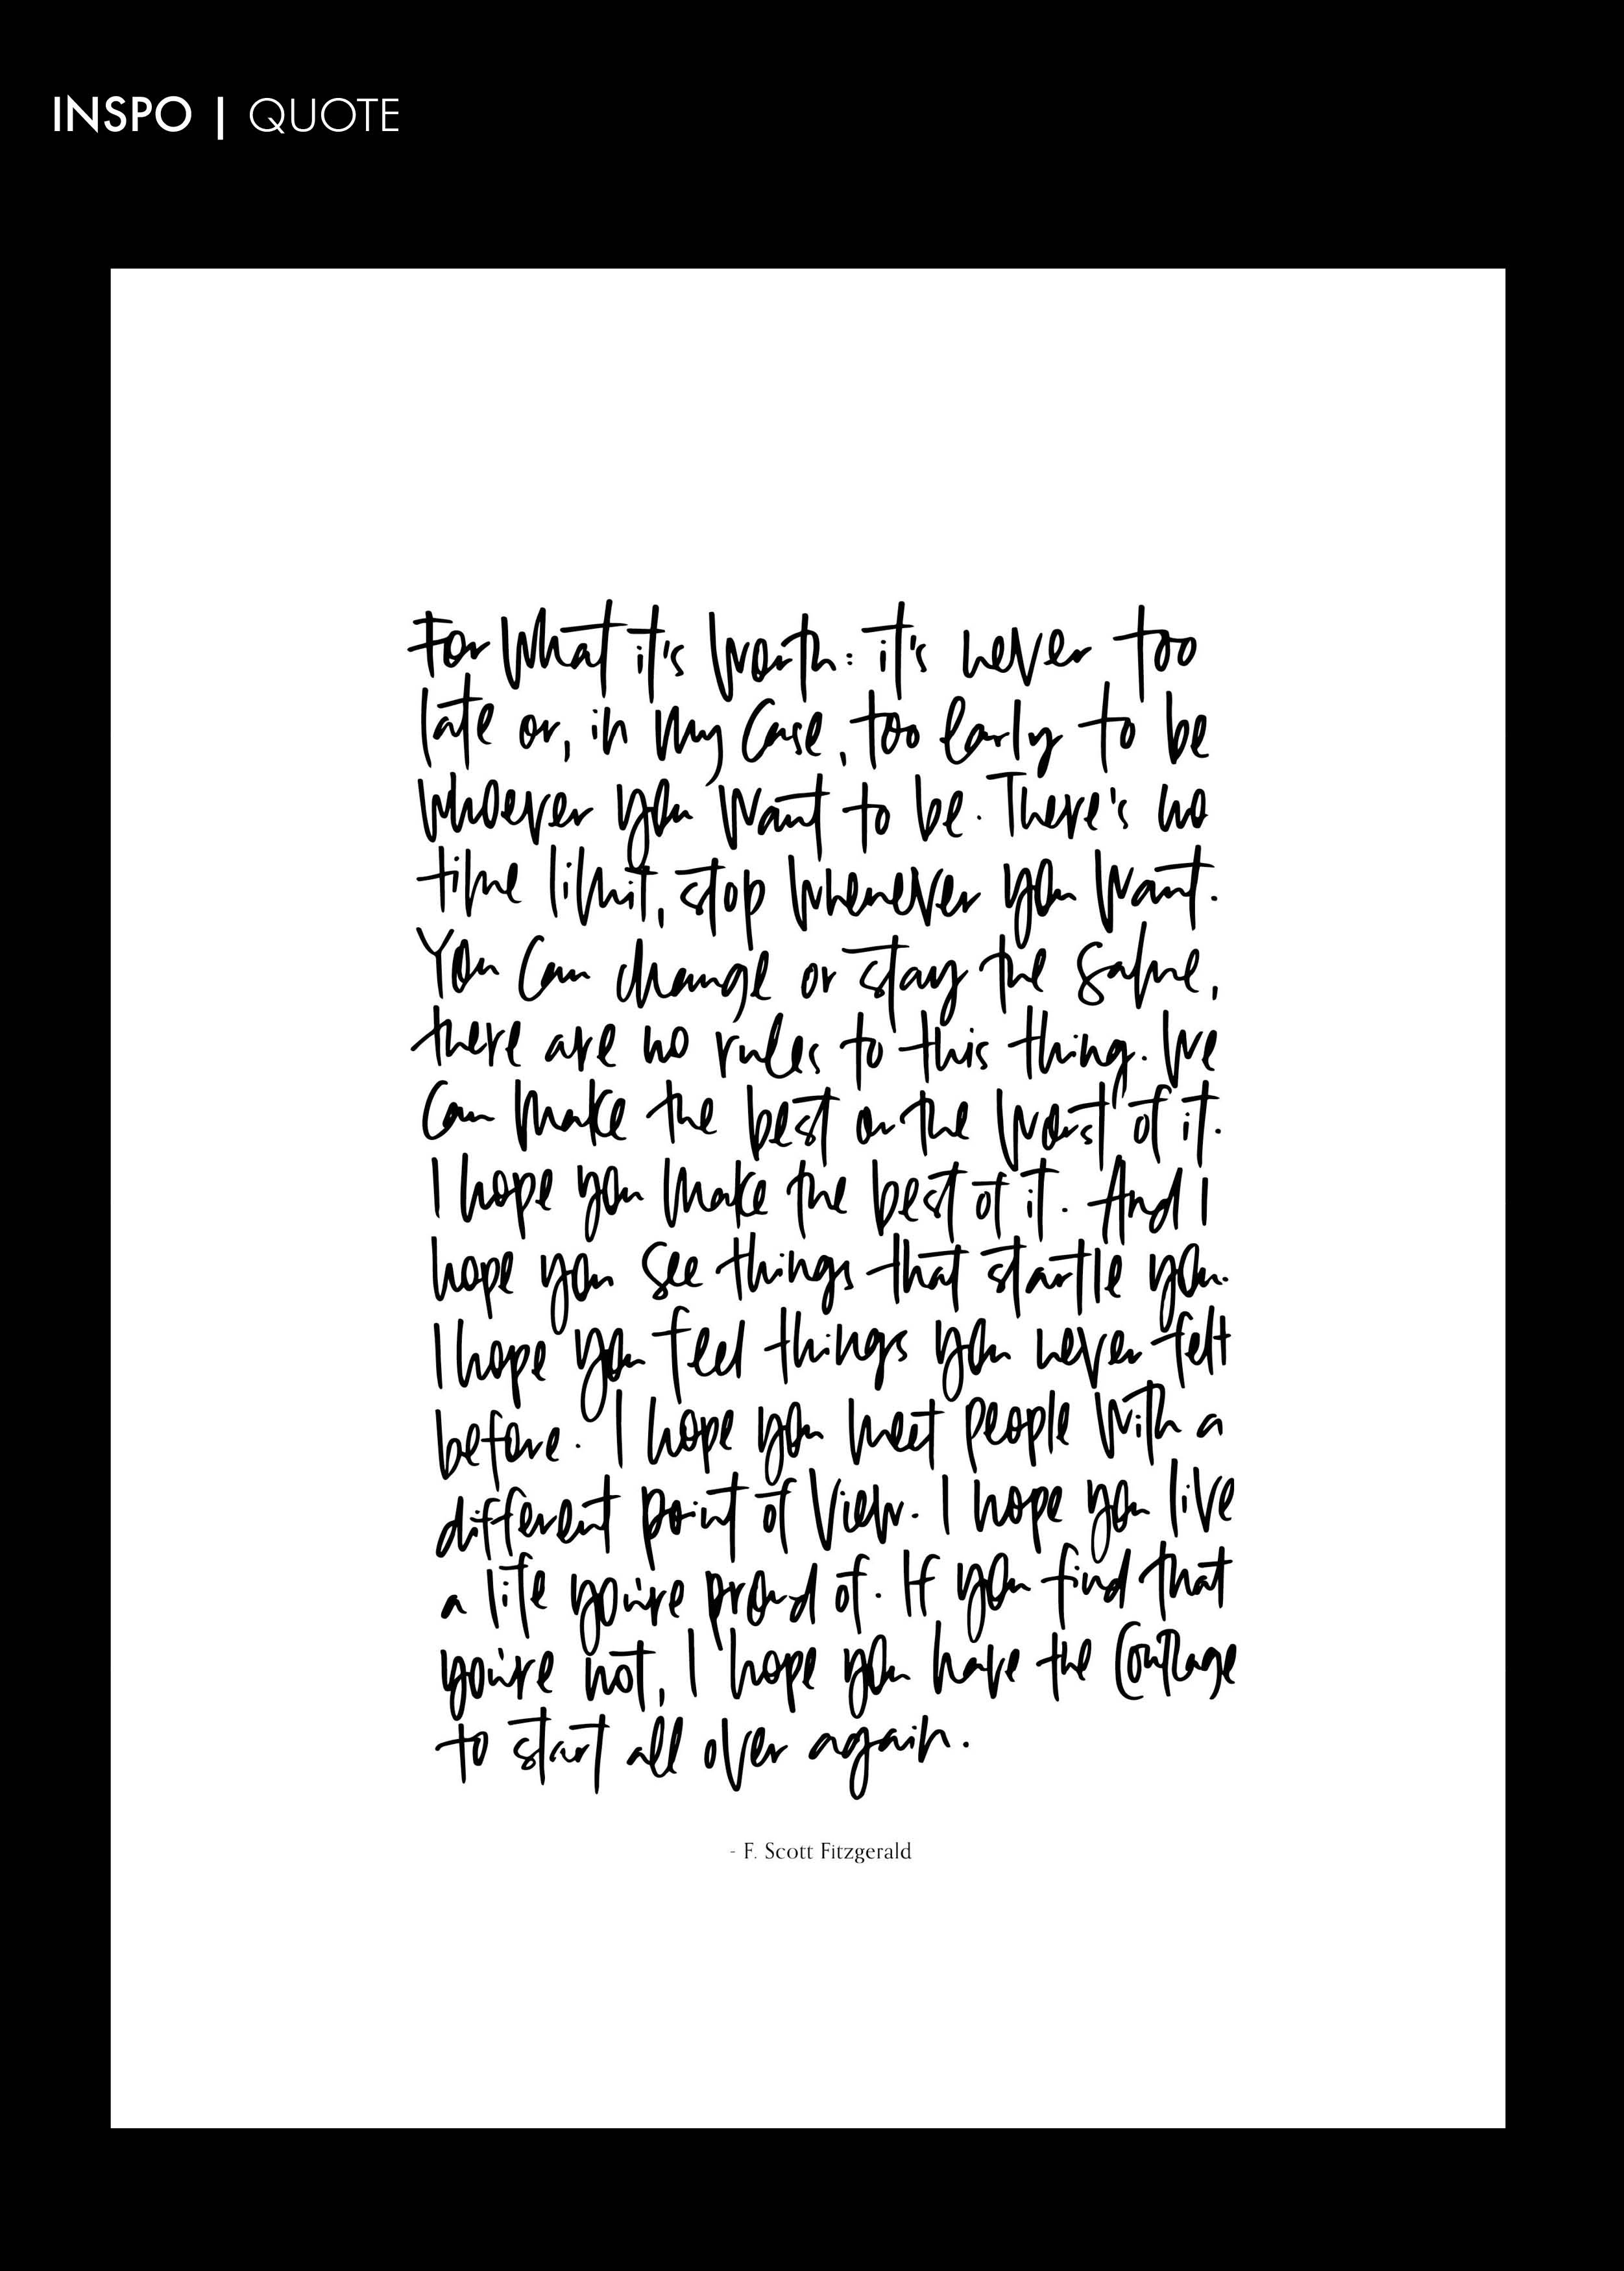 INSPO | QUOTE
For what it's worth: it's never too
late or, in my case, too early to be
whoever you want to be. There's no
time limit, stop whenever you want.
You can change or stay the same,
there are no rules to this thing. We
can make the best or the worst of it.
I hope you make the best of it. And I
hope you see things that startle you.
I hope you feel things you never felt
before. I hope you meet people with a
different point of view. I hope you live
a life you're proud of. If you find that
you're not, I hope you have the courage
to start all over again.
- F. Scott Fitzgerald